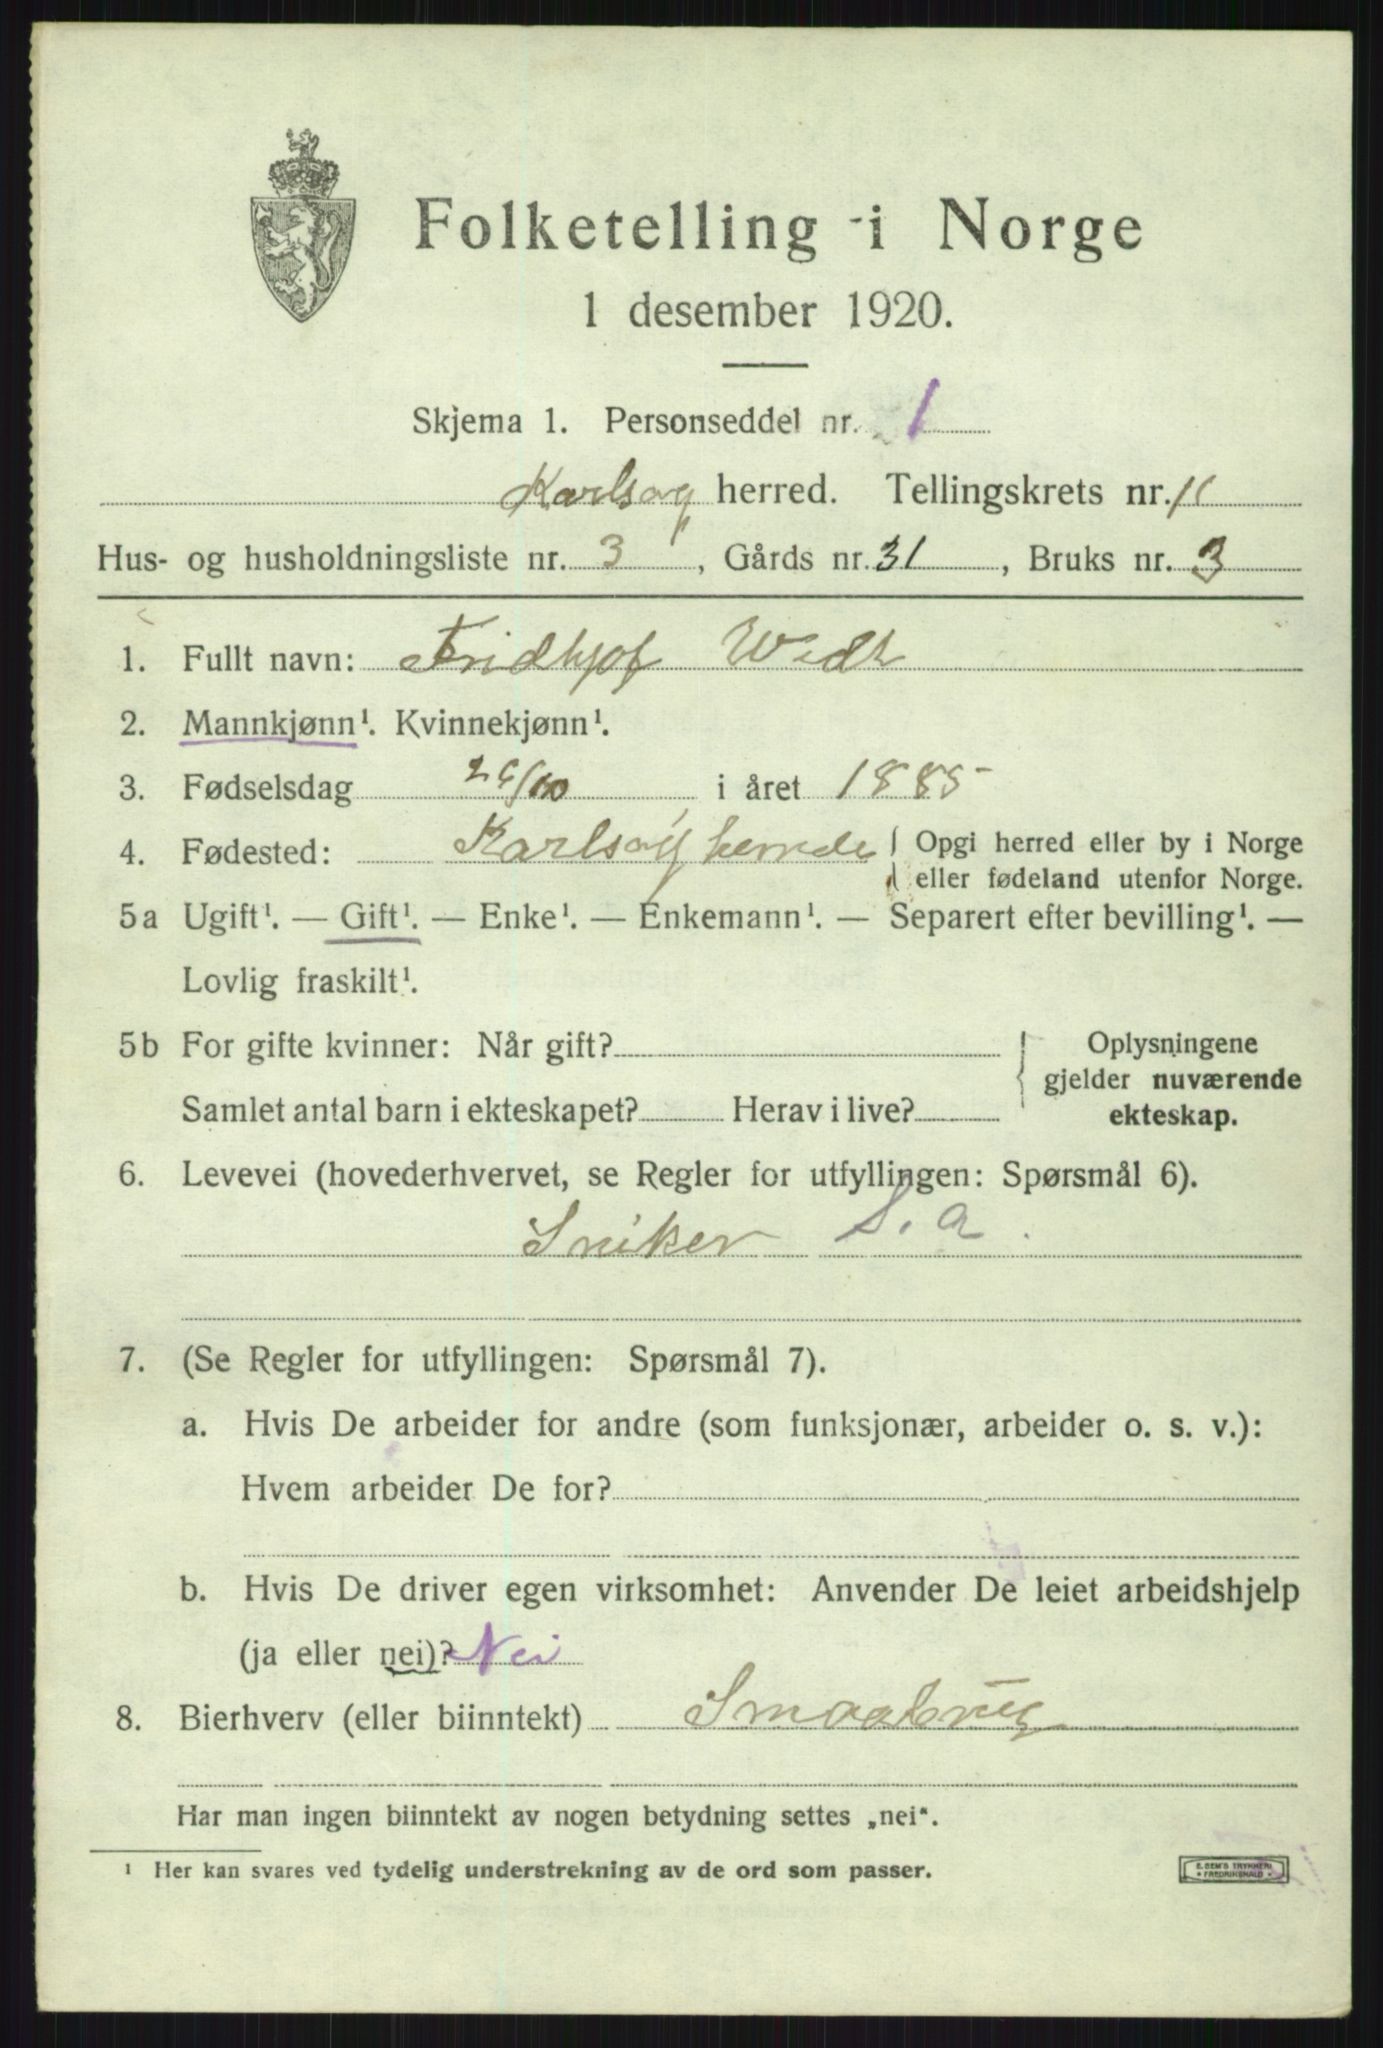 Folketelling i Norge
1 desember 1920.
Skjema 1. Personseddel nr. 1
Karlsøy herred. Tellingskrets nr. 11
Hus- og husholdningsliste nr. 3, Gårds nr. 31, Bruks nr. 3
1. Fullt navn: Fridhjof Widt
2. Mannkjønn¹. Kvinnekjønn¹.
3. Fødselsdag /10 i året 1885
4. Fødested: Karlsøy herrede { Opgi herred eller by i Norge
eller fødeland utenfor Norge.
5a Ugift¹. — Gift¹. — Enke¹. — Enkemann¹. — Separert efter bevilling¹. —
Lovlig fraskilt¹.
5b For gifte kvinner: Når gift? { Oplysningene
gjelder nuværende
Samlet antal barn i ekteskapet? Herav i live? ekteskap.
6. Levevei (hovederhvervet, se Regler for utfyllingen: Spørsmål 6).
Sniker S. a.
7. (Se Regler for utfyllingen: Spørsmål 7).
a. Hvis De arbeider for andre (som funksjonær, arbeider o. s. v.):
Hvem arbeider De for?
b. Hvis De driver egen virksomhet: Anvender De leiet arbeidshjelp
(ja eller nei)? Nei
8. Bierhverv (eller biinntekt) Smaabrug
Har man ingen biinntekt av nogen betydning settes „nei“.
¹ Her kan svares ved tydelig understrekning av de ord som passer.
E. SEM'S TRYKKERI
• FREDRIKSHALD •